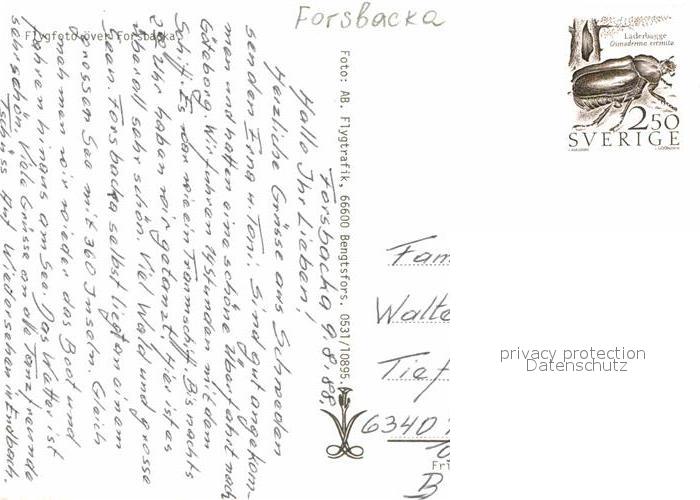 Forsbacka
Flygfoto över Forsbacka.
Forsbacka, 9.8.88.
Hallo Ihr Lieben!
Herzliche Grüsse aus Schweden
senden Erna u. Toni. Sind gut angekom-
men und hatten eine schöne Überfahrt nach
Göteborg. Wir fuhren 14 Stunden mit dem
Schiff. Es war wie ein Traumschiff. Bis nachts
2 Uhr haben wir getanzt. Hier ist es
überall sehr schön. Viel Wald und grosse
Seen. Forsbacka selbst liegt an einem
grossen See mit 360 Inseln. Gleich
nehmen wir wieder das Boot und
fahren hinaus am See. Das Wetter ist
sehr schön. Viele Grüsse an alle Tanzfreunde
Tschüss Auf Wiedersehen in Endbach.
Foto: AB. Flygtrafik, 66600 Bengtsfors. 0531/10895.
Läderbagge
Osmoderma eremita
2 50
SVERIGE
Fam
Walte
Tief
6340
B
privacy protection
Datenschutz